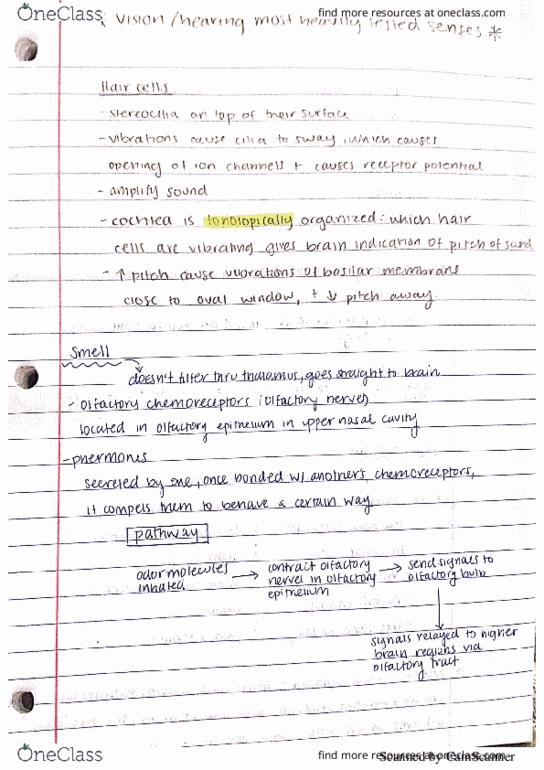 OneClass
find more resources at oneclass.com
* vision/hearing most heavily tested senses *
Hair cells
- stereocilia on top of their surface
- vibrations cause cilia to sway, which causes
opening of ion channels + causes receptor potential
- amplify sound
- cochlea is tonotopically organized: which hair
cells are vibrating gives brain indication of pitch of sound
- ↑ pitch cause vibrations of basilar membrane
close to oval window, + ↓ pitch away
Smell
doesn't filter thru thalamus, goes straight to brain
- olfactory chemoreceptors (olfactory nerves)
located in olfactory epithelium in upper nasal cavity
- phermones
secreted by one, + once bonded w/ another's chemoreceptors,
it compels them to behave a certain way
pathway
odor molecules inhaled → contract olfactory nerves in olfactory epithelium → send signals to olfactory bulb
signals relayed to higher
brain regions via
olfactory tract
OneClass
find more resources at oneclass.com
Scanned by CamScanner